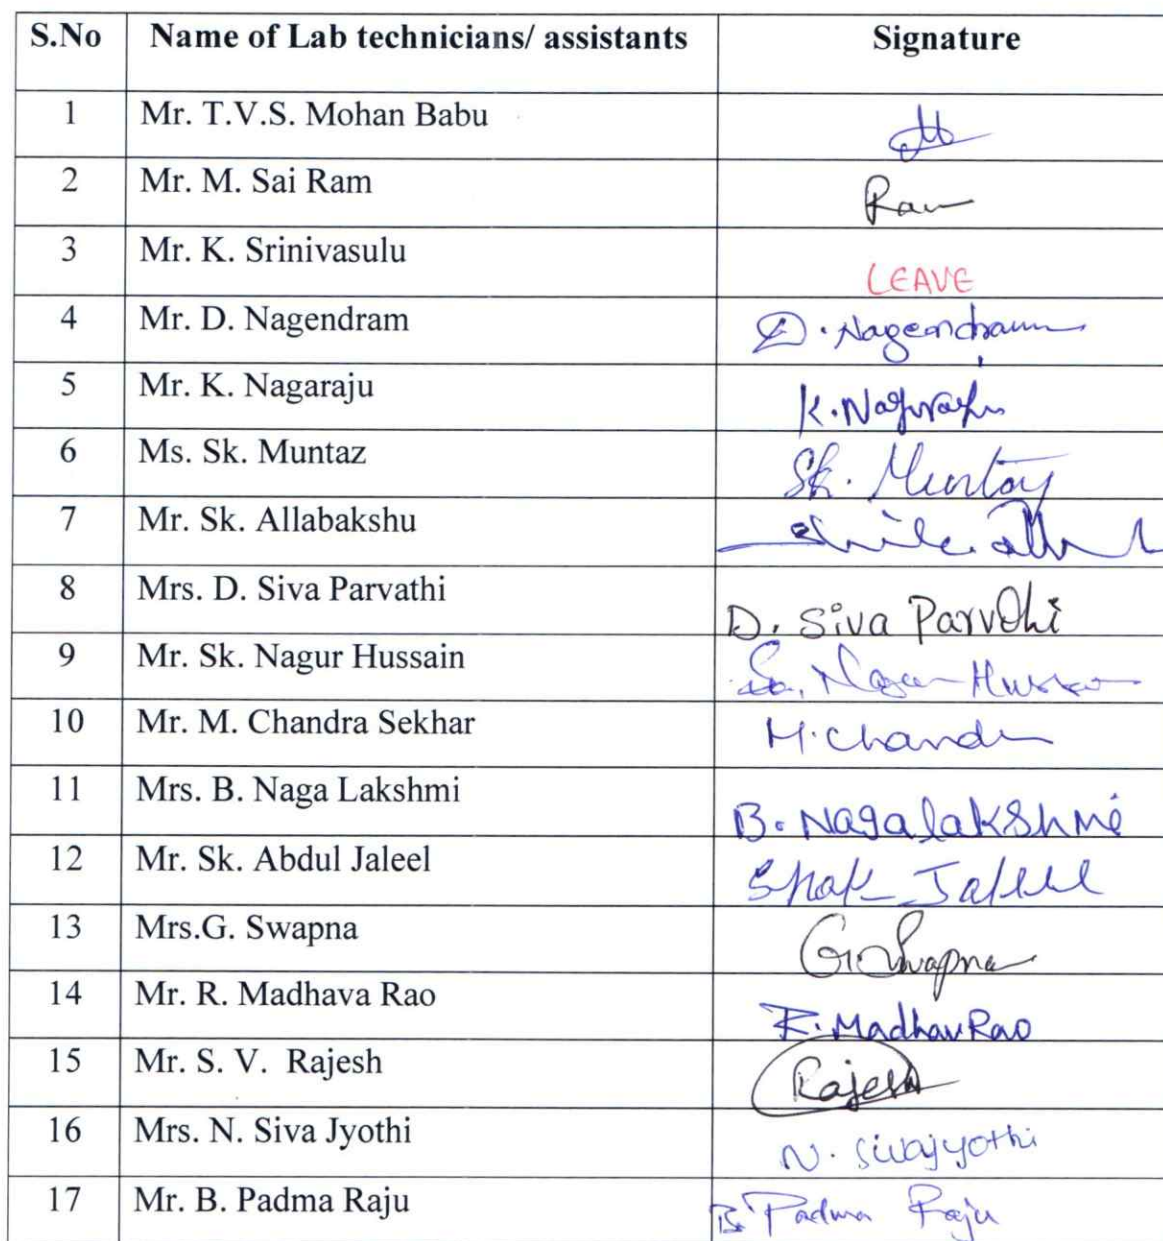 S.No Name of Lab technicians/ assistants Signature
1 Mr. T.V.S. Mohan Babu
2 Mr. M. Sai Ram Ram
3 Mr. K. Srinivasulu LEAVE
4 Mr. D. Nagendram D. Nagendram
5 Mr. K. Nagaraju K. Nagaraju
6 Ms. Sk. Muntaz Sk. Muntaz
7 Mr. Sk. Allabakshu
8 Mrs. D. Siva Parvathi D. Siva Parvathi
9 Mr. Sk. Nagur Hussain
10 Mr. M. Chandra Sekhar M. Chand
11 Mrs. B. Naga Lakshmi B. Nagalakshmi
12 Mr. Sk. Abdul Jaleel Shaik Jaleel
13 Mrs.G. Swapna G. Swapna
14 Mr. R. Madhava Rao R. Madhav Rao
15 Mr. S. V. Rajesh Rajesh
16 Mrs. N. Siva Jyothi N. Sivajyothi
17 Mr. B. Padma Raju B. Padma Raju